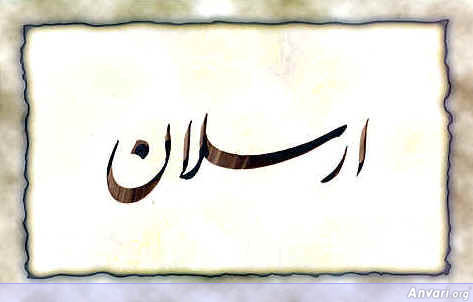 ارسلان
Anvari.org